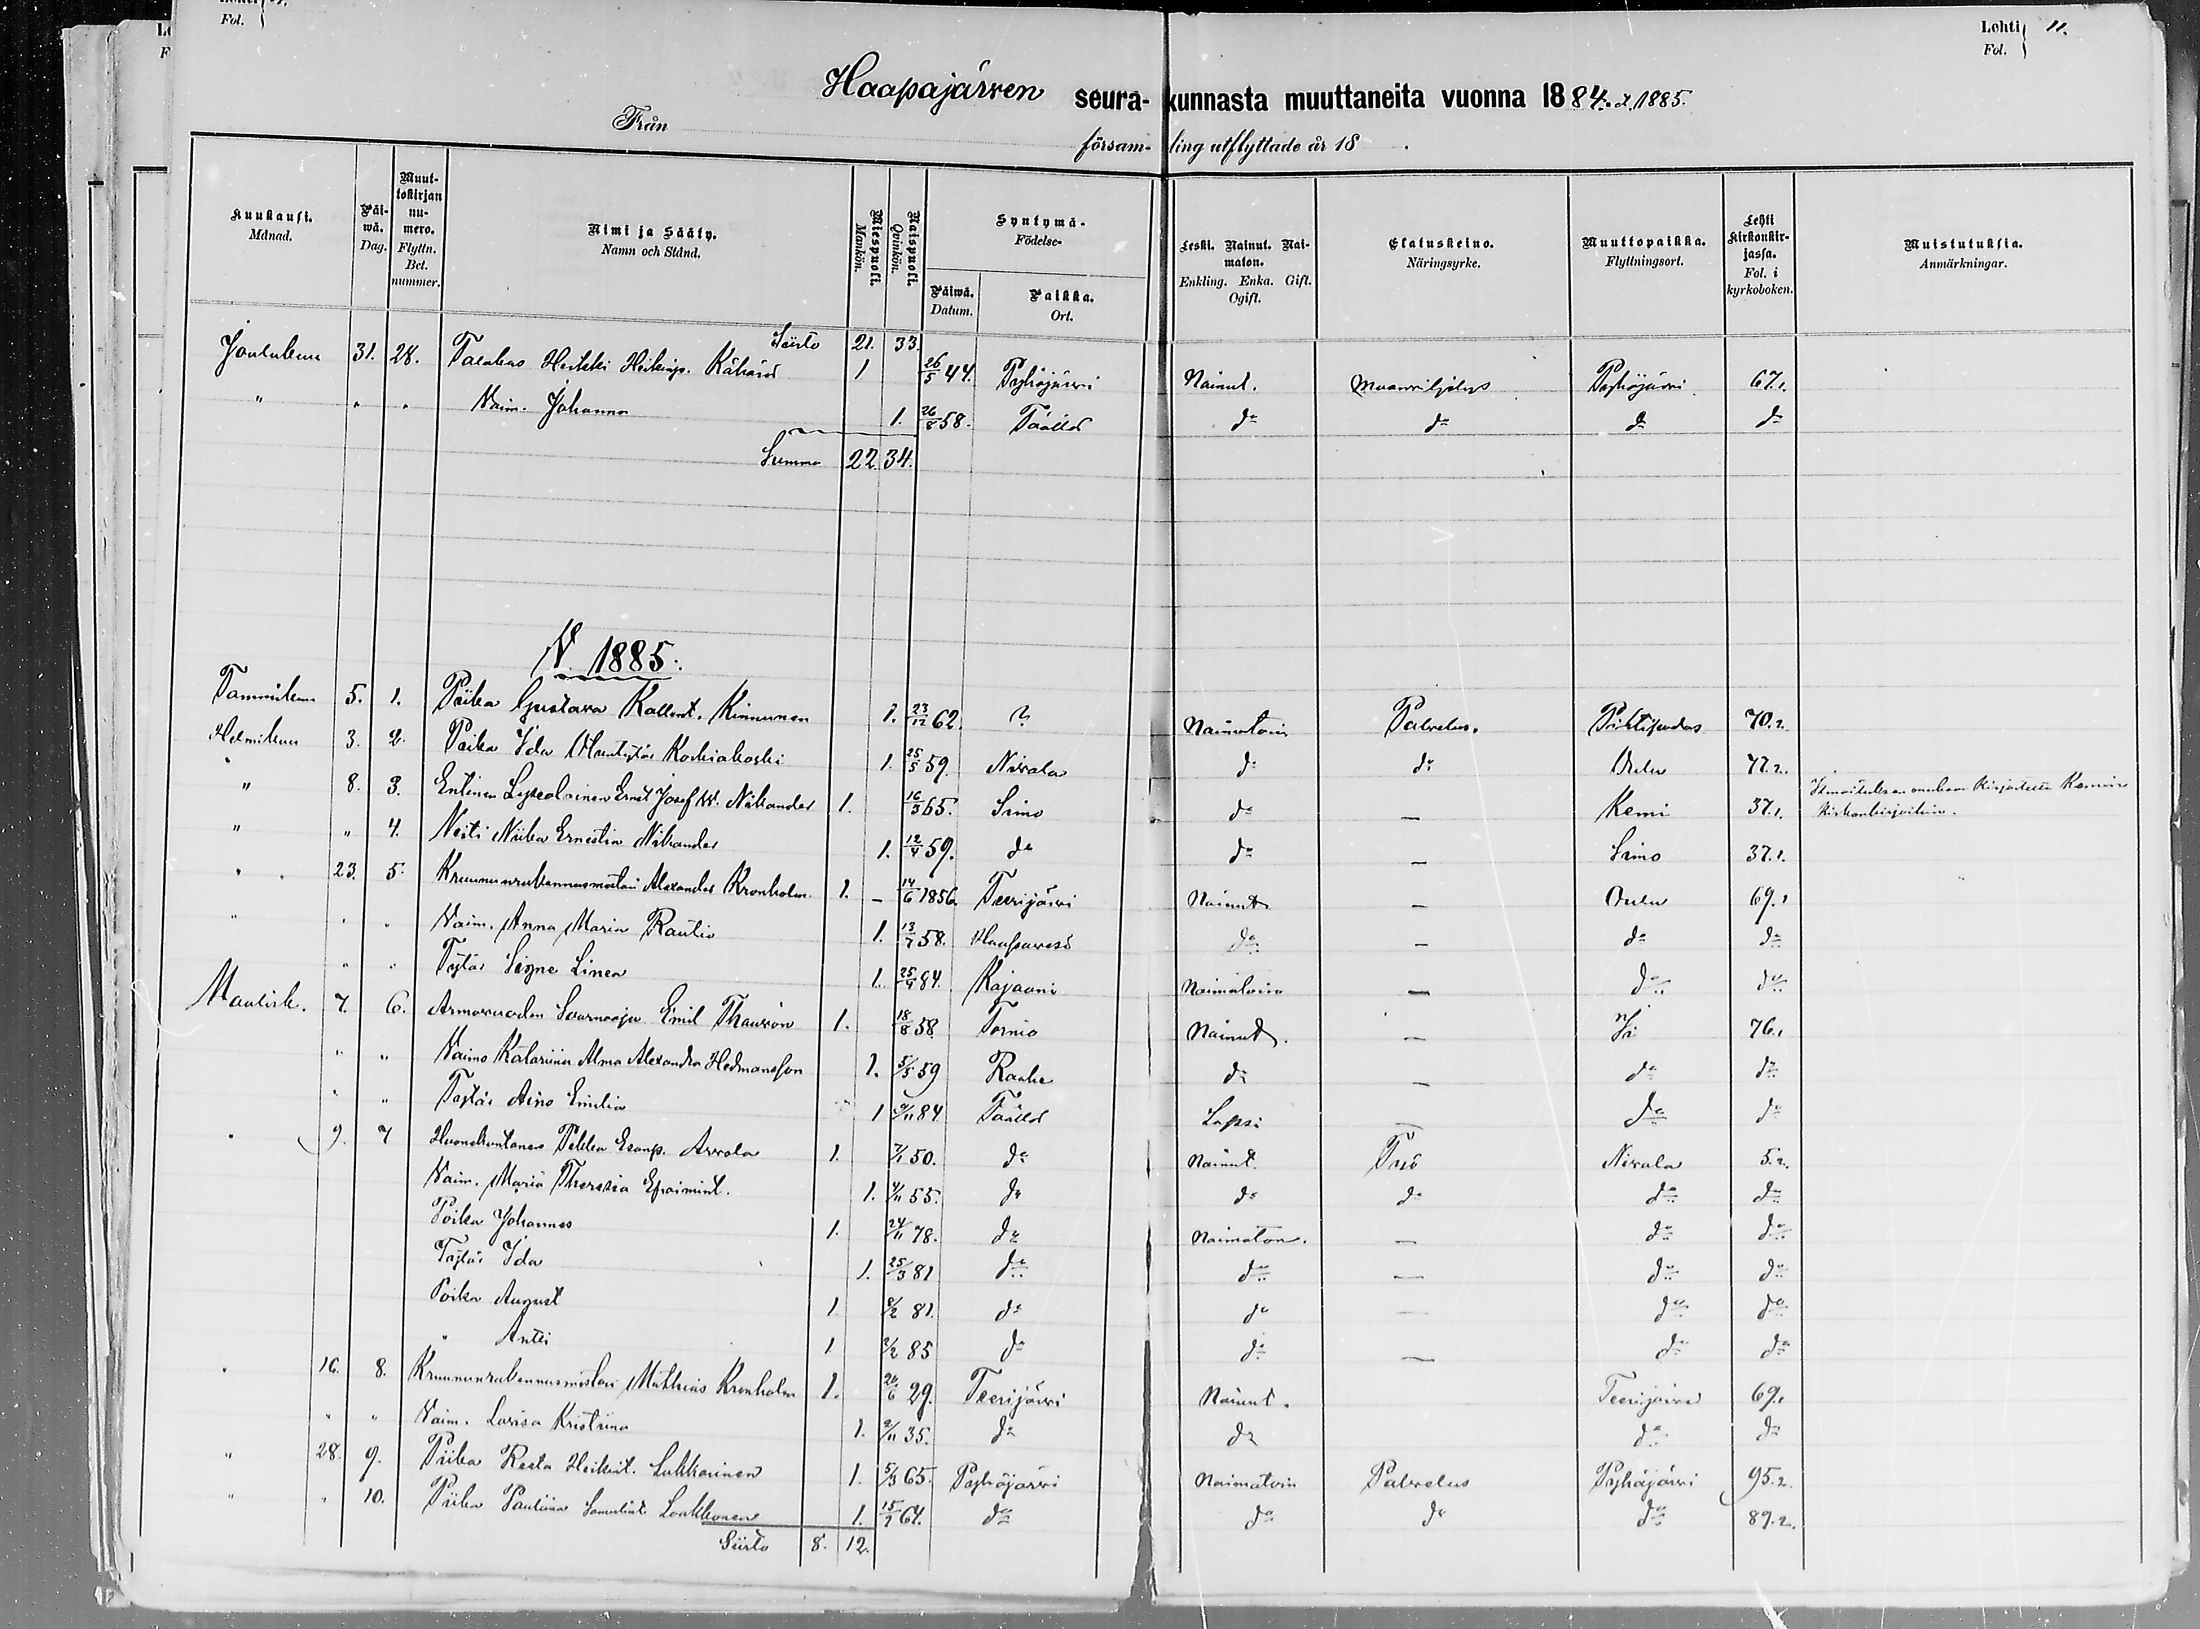 Fol.
Lehti 11.
Fol.
Haapajärwen seura- kunnasta muuttaneita vuonna 1884. & 1885.
Från försam- ling utflyttade år 18 .
Kuukausi. Månad. Päi-wä. Dag. Muut-tokirjan nu-mero. Flyttn. Bet. nummer. Nimi ja Sääty. Namn och Stånd. Miespuoli. Mankön. Naispuoli. Qvinkön. Syntymä- Födelse- Päiwä. Datum. Paikka. Ort. Leski. Nainut. Nai-maton. Enkling. Enka. Gift. Ogift. Elatuskeino. Näringsyrke. Muuttopaikka. Flyttningsort. Lehti kirkonkir-jassa. Fol. i kyrkoboken. Muistutuksia. Anmärkningar.
Siirto 21. 33.
Joulukuu 31. 28. Talokas Heikki Heikinp. Kähärä 1 26/5 44. Pyhäjärwi Nainut. Maanwiljelys Pyhäjärwi 67.1.
" " " Waim. Johanna 1. 26/8 58. Täällä do do do do
Summa 22. 34.
W. 1885.
Tammikuu 5. 1. Piika Gustava Kallent. Kinnunen 1. 23/12 62. ? Naimatoin Palvelus. Pihtipudas 70.2.
Helmikuu 3. 2. Piika Ida Kockiakoski 1. 25/5 59. Nivala do do Oulu 77.2.
" 8. 3. Entinen Lysealainen Ernst Josef W. Nikander 1. 16/3 65. Simo do — Kemi 37.1. Kirjoitettu Kemin
kirkonkirjoihin.
" " 4. Neiti Niika Ernestina Nikander 1. 12/4 59. do do — Simo 37.1.
" 23. 5. Kruununrakennusmestari Alexander Kronholm 1. – 14/6 1856. Teerijärwi Nainut — Oulu 69.1
" " " Waim. Anna Maria Rautio 1. 13/7 58. Haapavesi do — do do
" " Tytär Signe Linea 1. 25/4 84. Kajaani Naimatoin — do do
Maalisk. 7. 6. Armovuoden Saarnaaja Emil Thauvón 1. 18/8 58. Tornio Nainut. — Ii 76.1
" " Waimo Katariina Alma Alexandra Hedmansson 1. 5/5 59 Raahe do — do do
" " Tytär Aino Emilia 1 9/11 84 Täällä Lapsi — do do
" 9. 7 Huonekuntanen Pekka Esanp. Arvola 1. 7/1 50. do Nainut. Työ Nivala 5.2.
Waim. Maria Theresia Efraimint. 1. 4/11 55. do do do do do
Poika Johannes 1. 24/11 78. do Naimaton. — do do
Tytär Ida 1. 25/3 81 do do — do do
Poika August 1. 9/2 81. do do — do do
" Antti 1 2/2 85 do do — do do
" 16. 8. Kruununrakennusmestari Mathias Kronholm 1. 20/6 29. Teerijärwi Nainut. Teerijärwi 69.1
" " Waim. Lovisa Kristiina 1. 2/11 35. do do do do
" 28. 9. Piika Reeta Heikint. Lukkarinen 1. 5/3 65. Pyhäjärwi Naimatoin Palvelus Pyhäjärwi 95.2.
" " 10. Piika Pauliina Samulint. Laakkonen 1. 15/2 64. do do do do 89.2.
Siirto 8. 12.